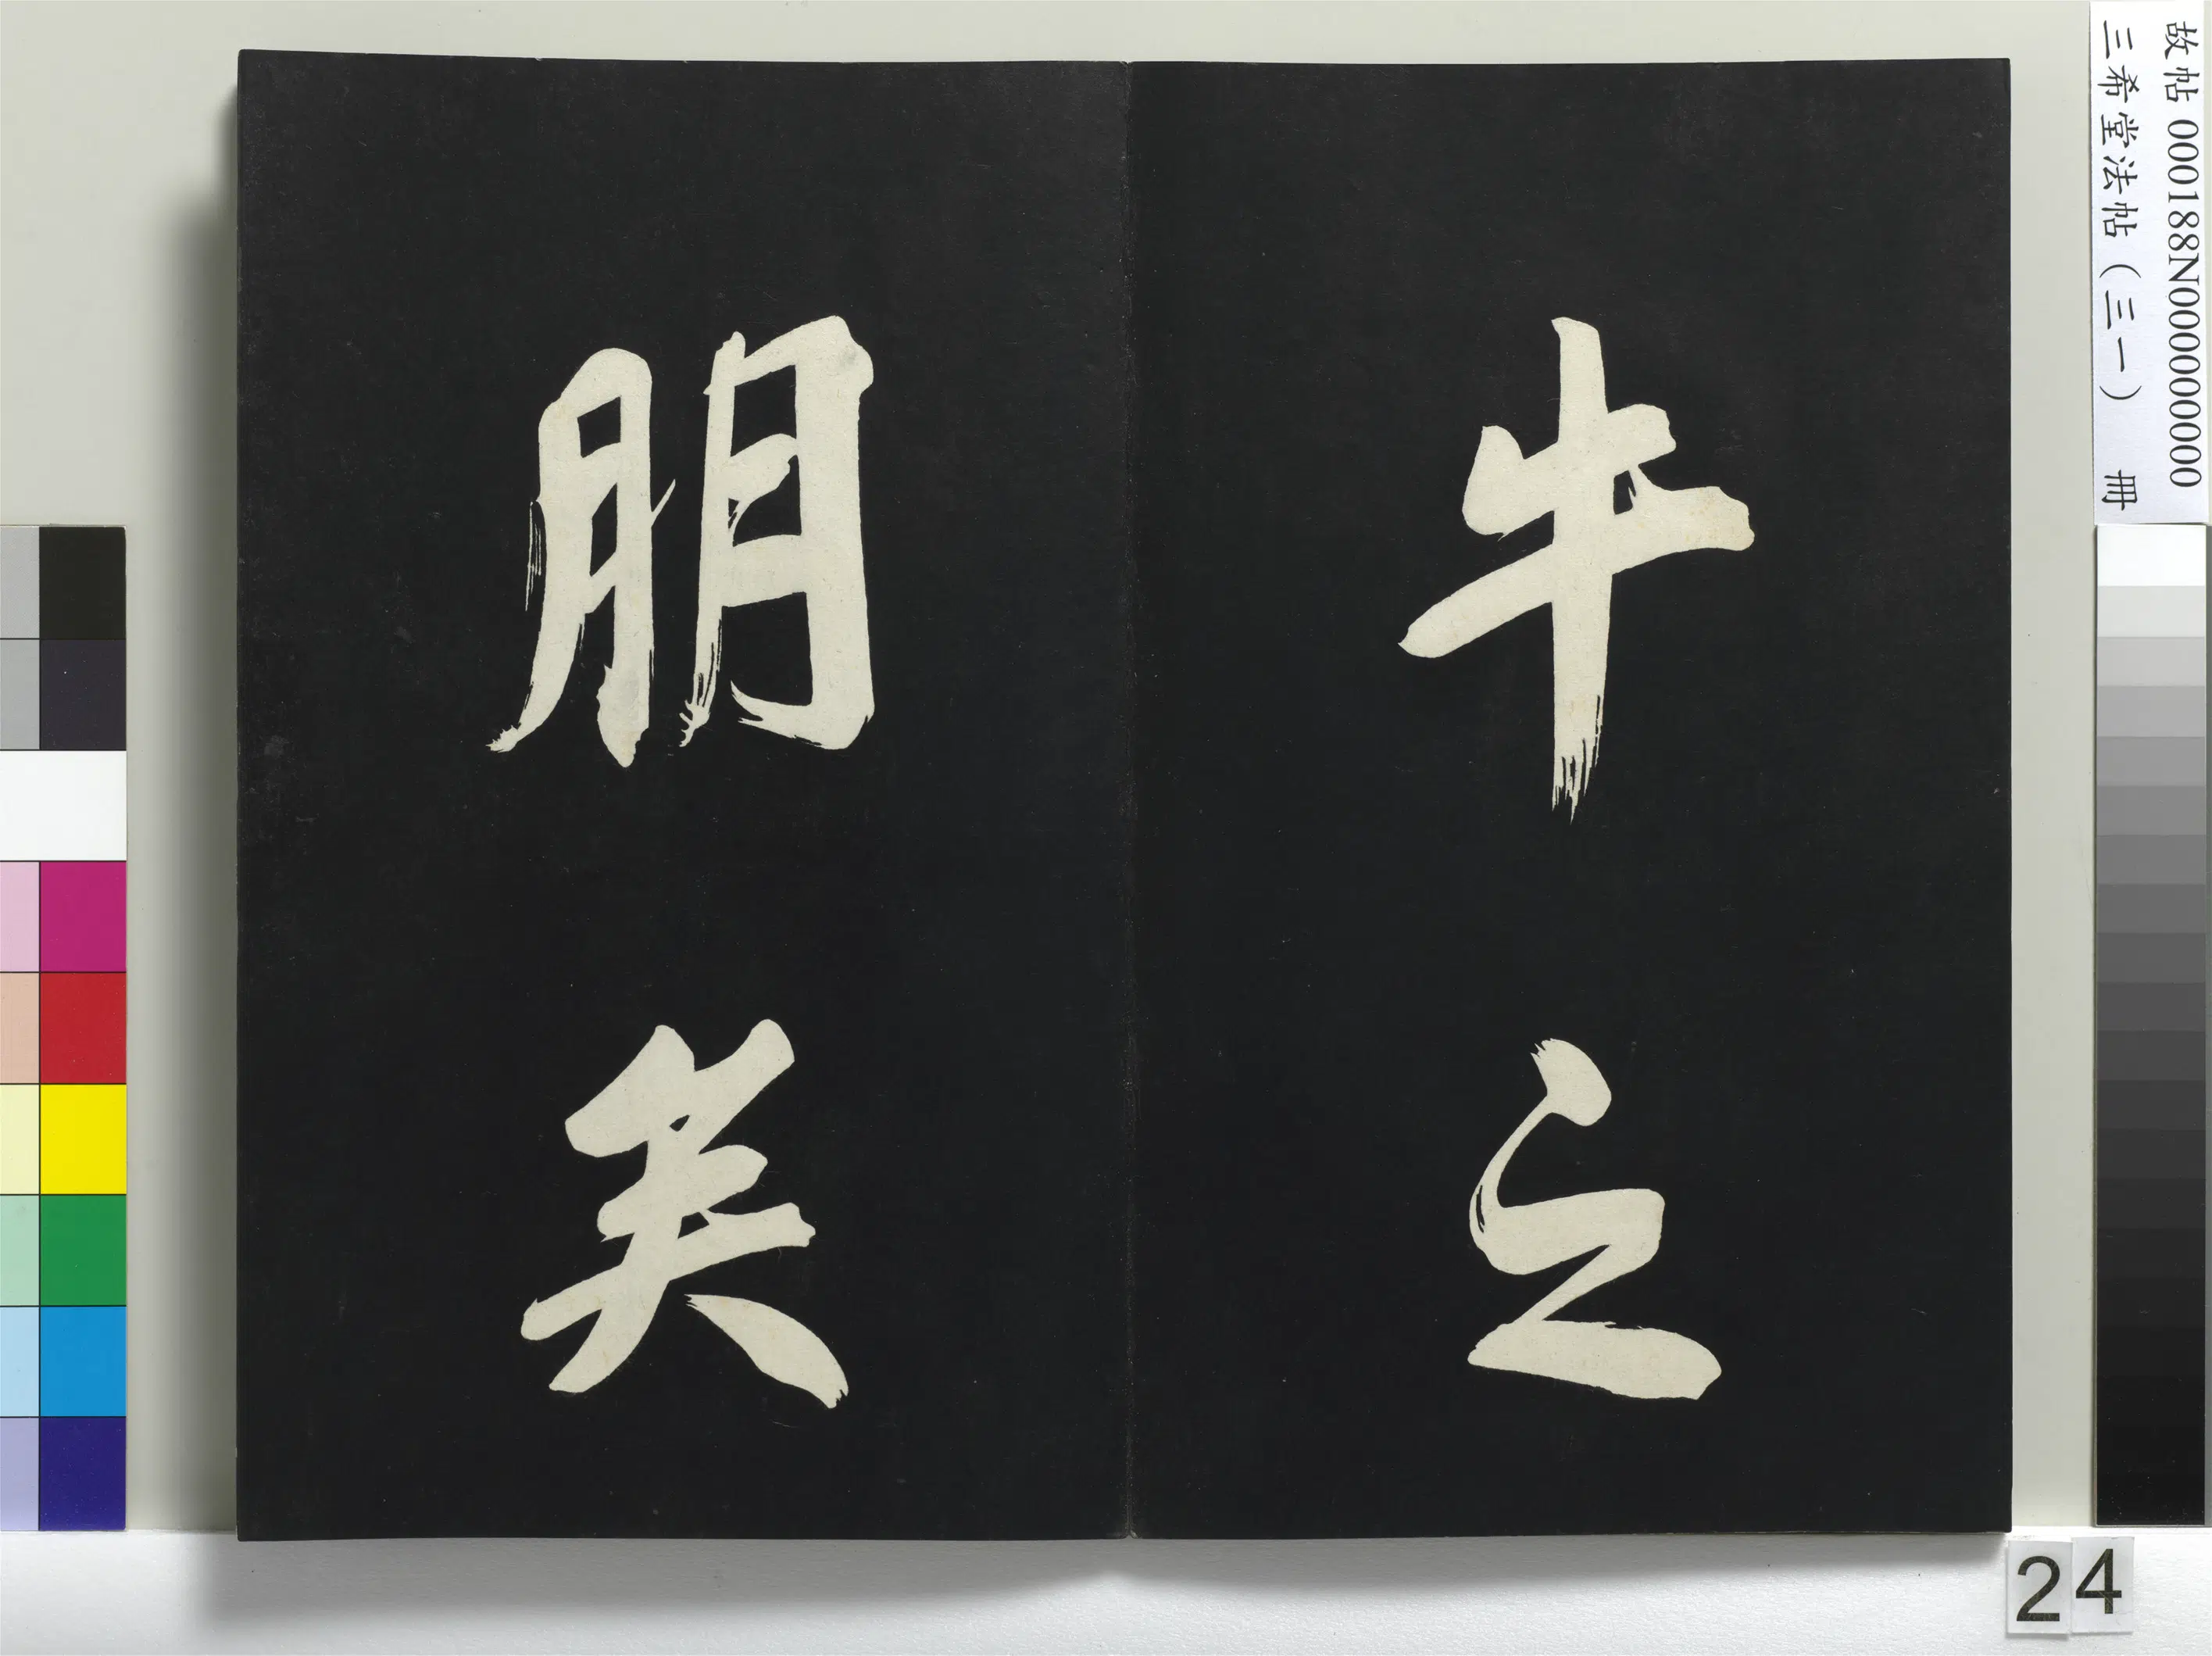 故帖 000188N000000000
三希堂法帖（三一） 冊
牛之
朋美
24